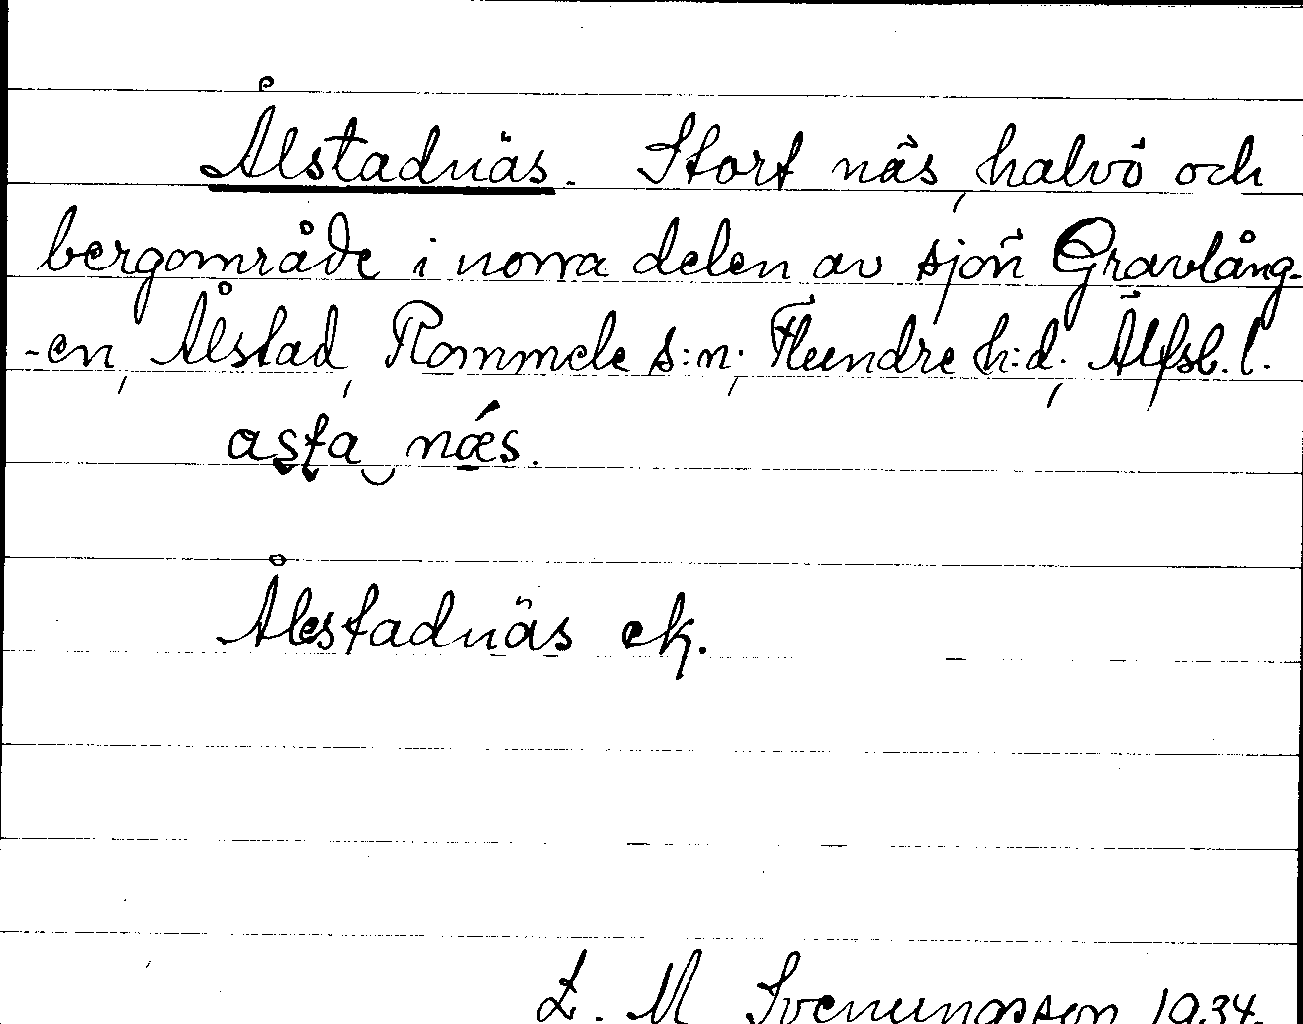 Ålstadnäs. Stort näs, halvö och
bergområde i norra delen av sjön Gravlång-
-en, Ålstad, Rommele s:n; Flundre h:d; Älfsb. l.
asta næs.
Ålstadnäs ek.
L. M Svenungsson 1934.